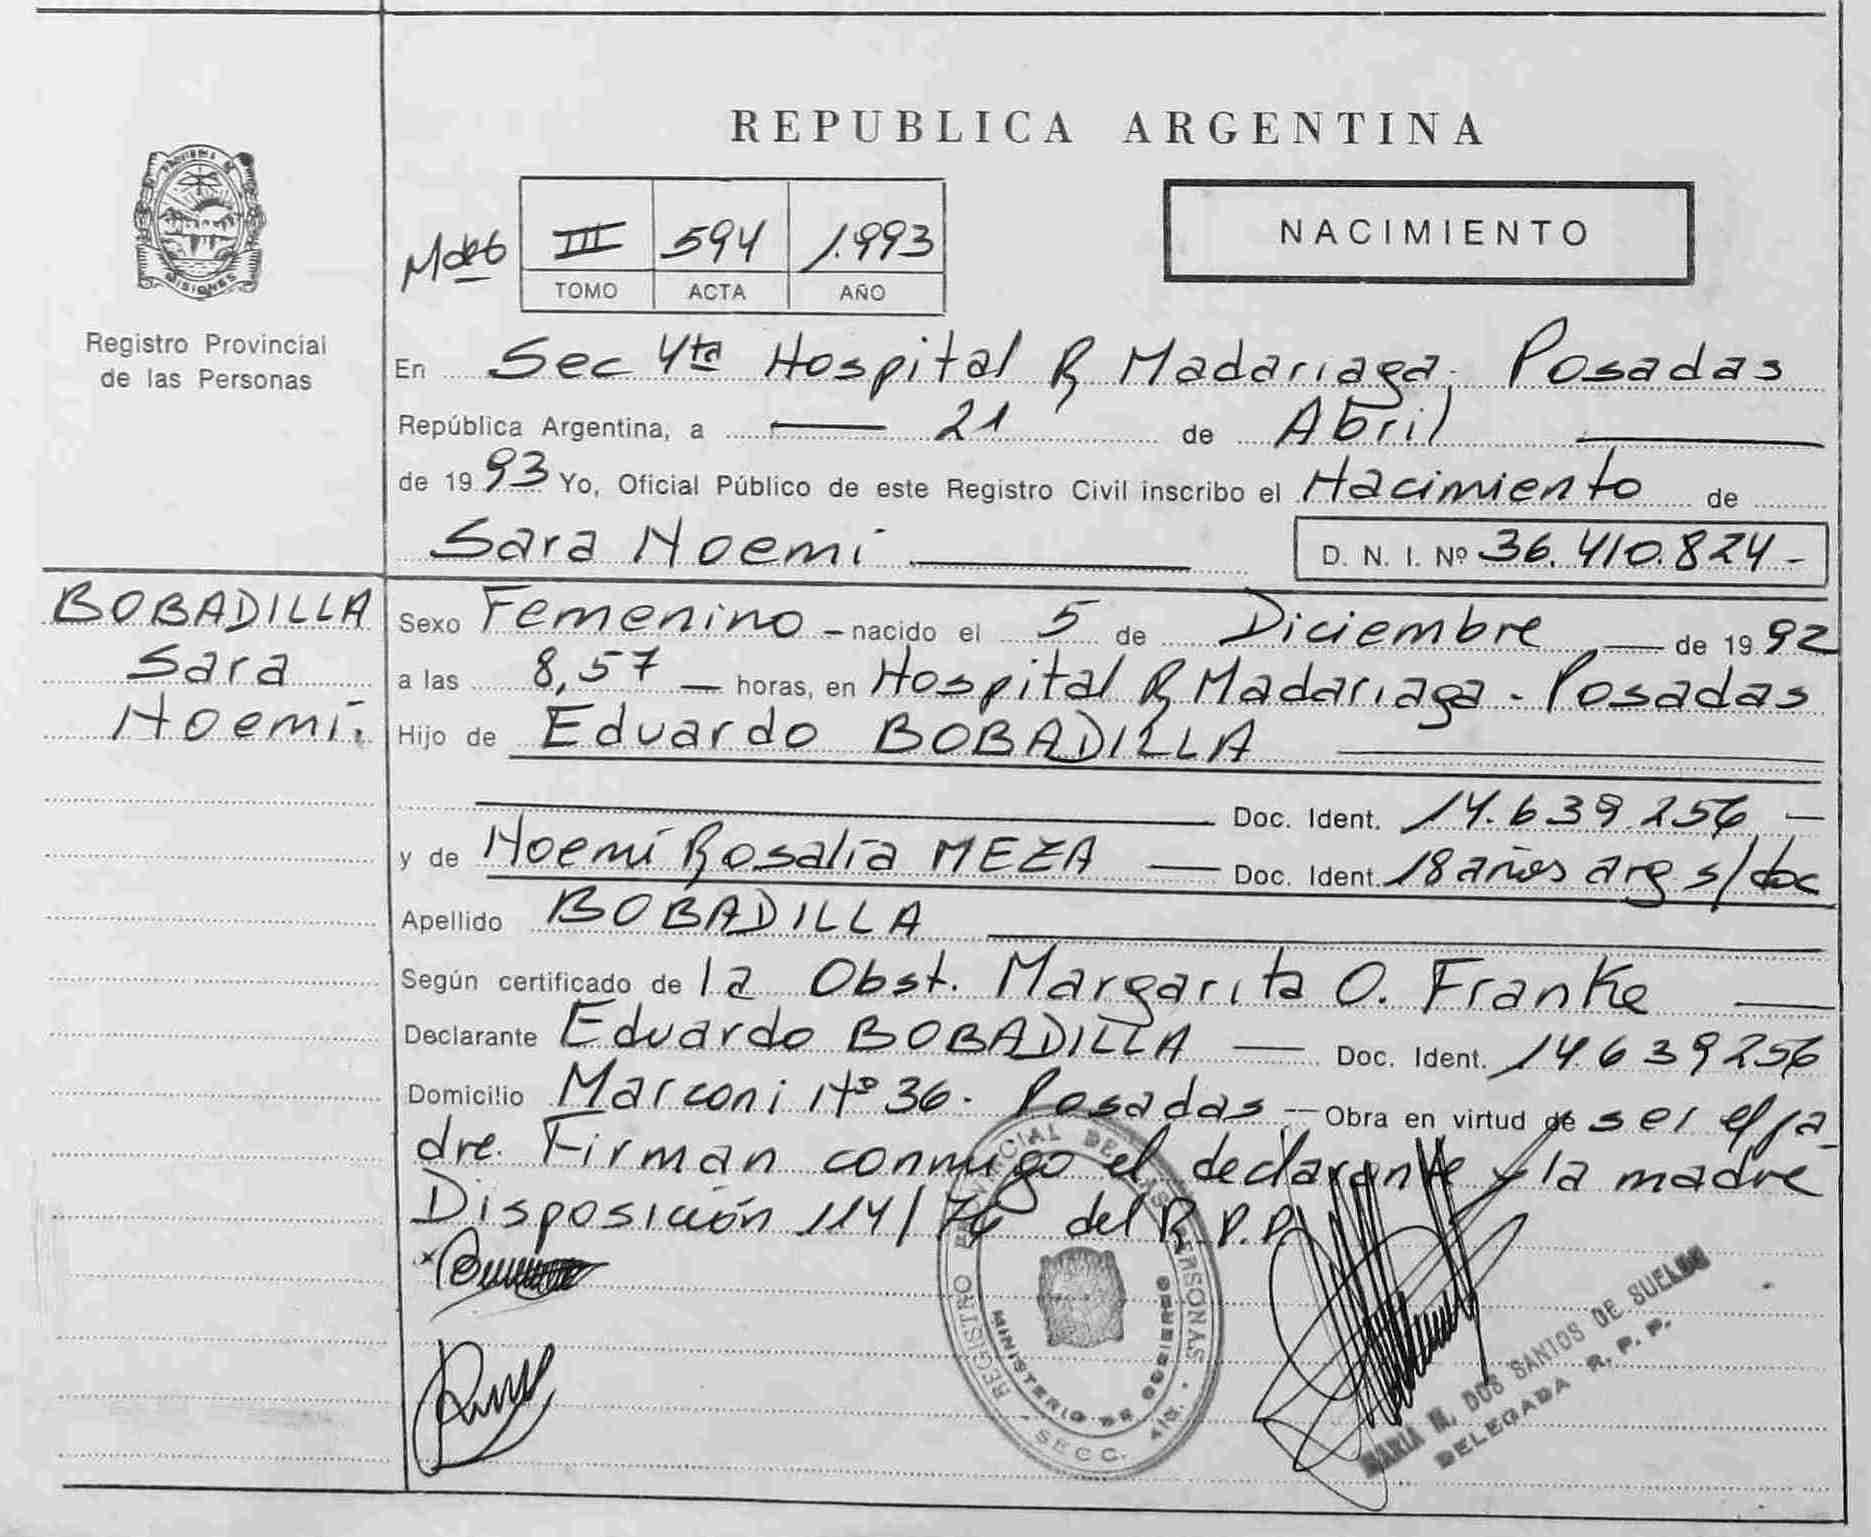 REPUBLICA ARGENTINA
PROVINCIA DE MISIONES
Registro Provincial
de las Personas
III 594 1.993
TOMO ACTA AÑO
NACIMIENTO
En Sec 4ta Hospital R Madariaga. Posadas
República Argentina, a 21 de Abril
de 1993 Yo, Oficial Público de este Registro Civil inscribo el Nacimiento de
Sara Noemi D. N. I. Nº 36.410.824-
BOBADILLA
Sara
Noemi.
Sexo Femenino - nacido el 5 de Diciembre de 1992
a las 8,57 horas, en Hospital R Madariaga - Posadas
Hijo de Eduardo BOBADILLA
Doc. Ident. 14.639.256
y de Noemí Rosalia MEZA Doc. Ident. 18 años arg s/doc
Apellido BOBADILLA
Según certificado de la Obst. Margarita O. Franke
Declarante Eduardo BOBADILLA Doc. Ident. 14.639256
Domicilio Marconi Nº 36. Posadas Obra en virtud de ser el pa
dre. Firman conmigo el declarante y la madre
Disposición 114/76 del R.P.P.
REGISTRO PROVINCIAL DE LAS PERSONAS
MINISTERIO DE GOBIERNO
SECC. 4ta.
MARIA M. DOS SANTOS DE SUELDO
DELEGADA R. P. P.